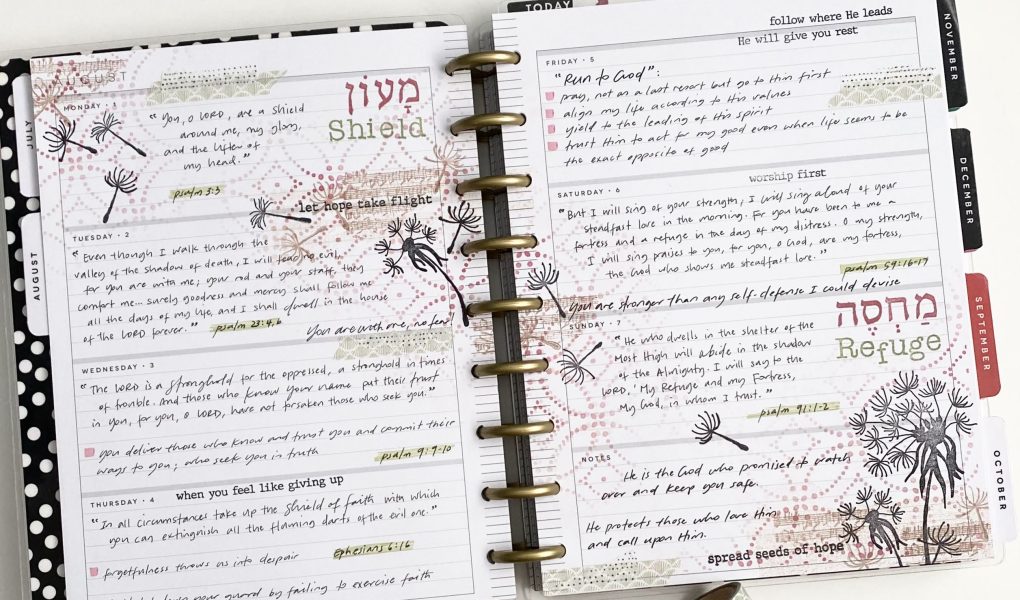 AUGUST
MONDAY • 1
"You, O LORD, are a shield
around me, my glory,
and the lifter of
my head."
psalm 3:3
מָעוֹן
Shield
let hope take flight
TUESDAY • 2
"Even though I walk through the
valley of the shadow of death, I will fear no evil,
for you are with me; your rod and your staff, they
comfort me... surely goodness and mercy shall follow me
all the days of my life, and I shall dwell in the house
of the LORD forever." psalm 23:4,6
You are with me, no fear!
WEDNESDAY • 3
"The LORD is a stronghold for the oppressed, a stronghold in times
of trouble. And those who know your name put their trust
in you, for you, O LORD, have not forsaken those who seek you."
you deliver those who know and trust you and commit their
ways to you; who seek you in truth
psalm 9:9-10
THURSDAY • 4
when you feel like giving up
"In all circumstances take up the shield of faith with which
you can extinguish all the flaming darts of the evil one."
Ephesians 6:16
forgetfulness throws us into despair
your guard by failing to exercise faith
JULY
AUGUST
TODAY
follow where He leads
He will give you rest
FRIDAY • 5
"Run to God":
pray, not as a last resort but go to Him first
align my life according to His values
yield to the leading of His spirit
trust Him to act for my good even when life seems to be
the exact opposite of good
SATURDAY • 6
worship first
"But I will sing of your strength; I will sing aloud of your
steadfast love in the morning. For you have been to me a
fortress and a refuge in the day of my distress. O my strength,
I will sing praises to you, for you, O God, are my fortress,
the God who shows me steadfast love."
psalm 59:16-17
You are stronger than any self-defense I could devise
SUNDAY • 7
מַחְסֶה
Refuge
"He who dwells in the shelter of the
Most High will abide in the shadow
of the Almighty. I will say to the
LORD, 'My Refuge and my Fortress,
My God, in whom I trust."
psalm 91:1-2
NOTES
He is the God who promised to watch
over and keep you safe.
He protects those who love Him
and call upon Him.
spread seeds of hope
NOVEMBER
DECEMBER
SEPTEMBER
OCTOBER